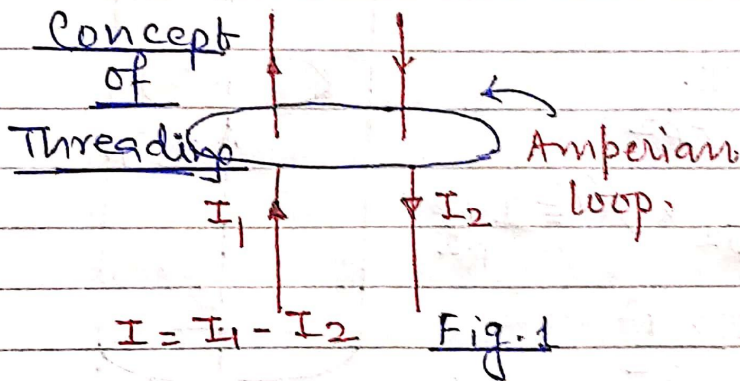 Concept
of
Threading
Amperian
loop.
I₁
I₂
I = I₁ - I₂
Fig. 1